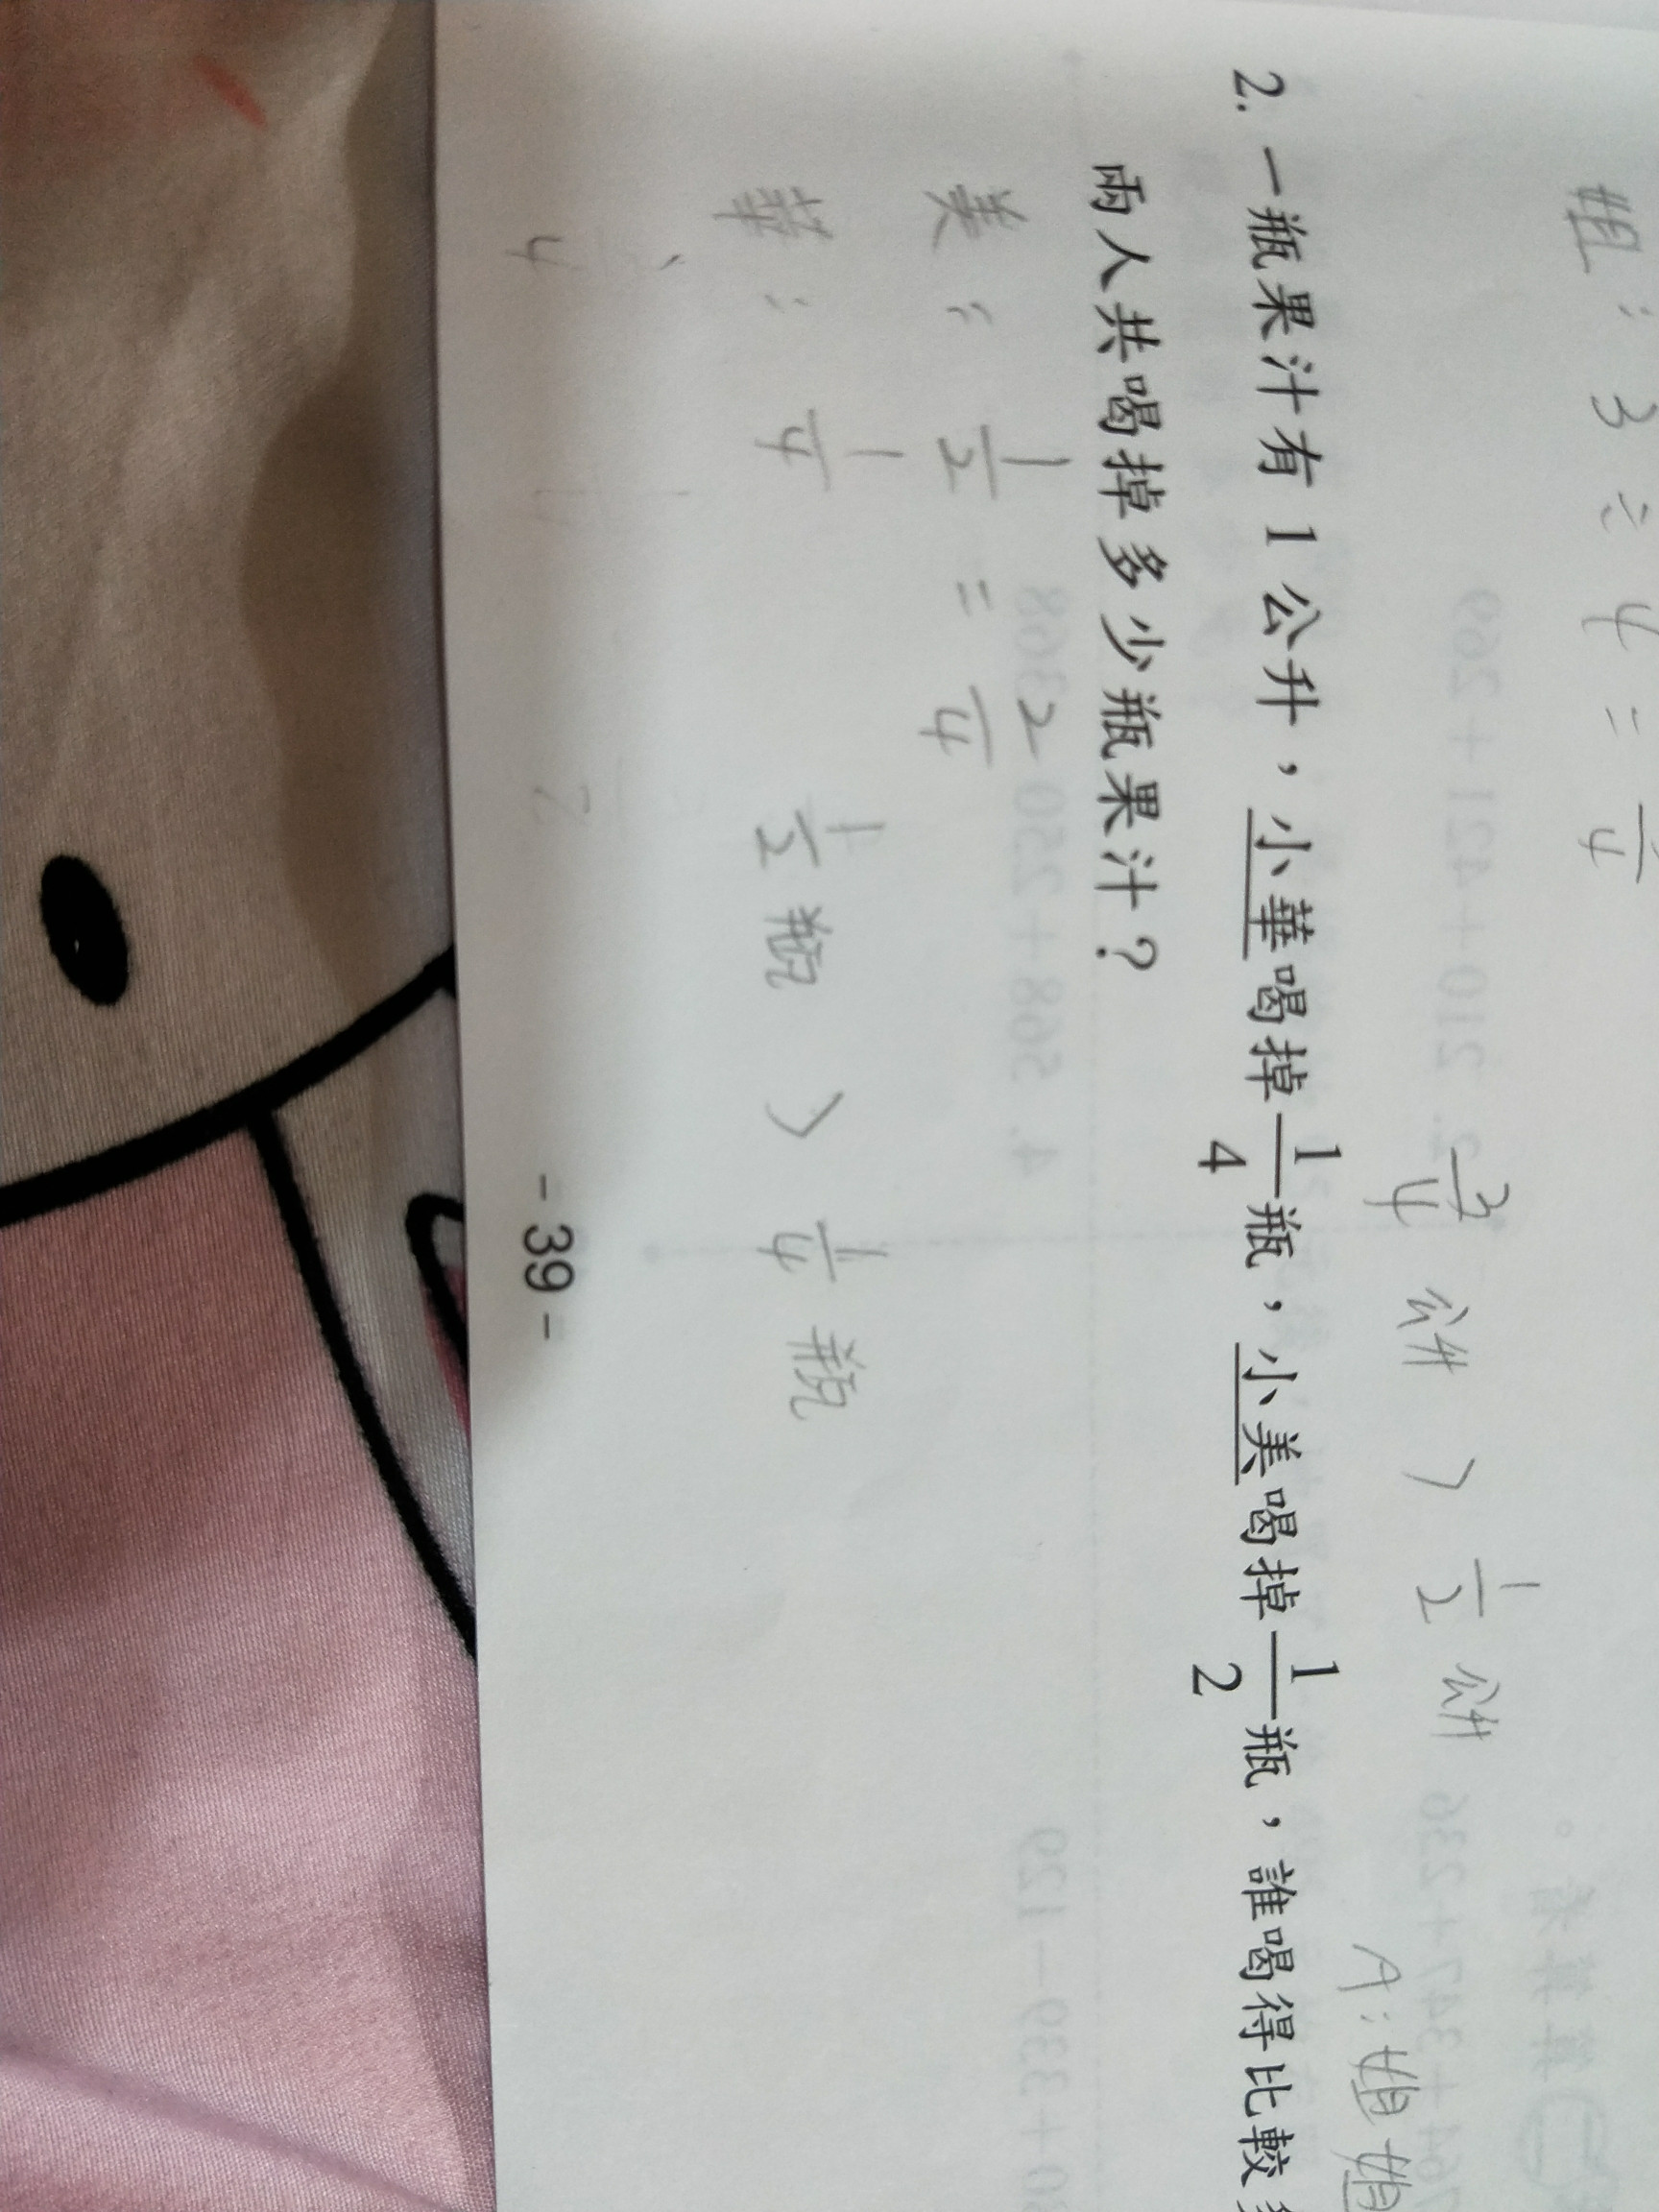 姐: 3 ÷ 4 = 4
3/4 公升 > 1/2 公升
A: 姐姐
2. 一瓶果汁有 1 公升，小華喝掉 1/4 瓶，小美喝掉 1/2 瓶，誰喝得比較
兩人共喝掉多少瓶果汁？
美: 1/2 = 2/4
華: 1/4 1/2 瓶 > 1/4 瓶
- 39 -